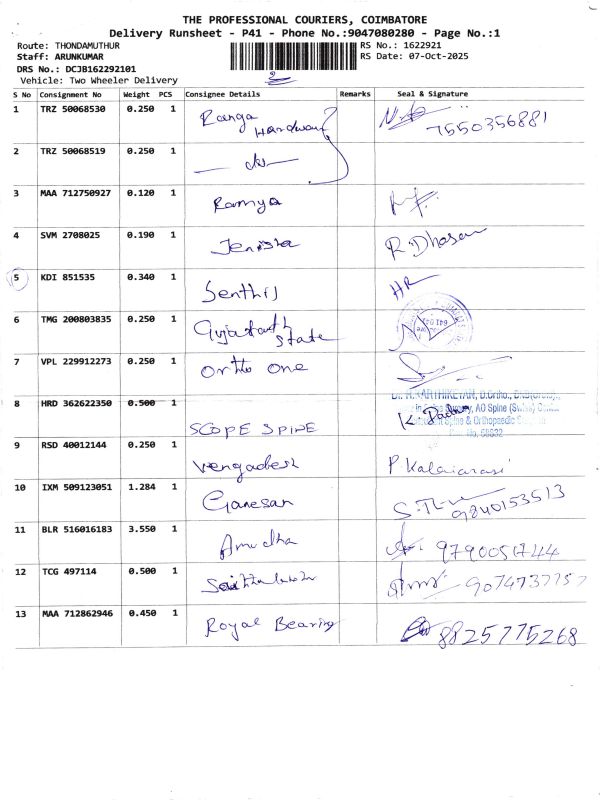 THE PROFESSIONAL COURIERS, COIMBATORE
Delivery Runsheet - P41 - Phone No.:9047080280 - Page No.:1
Route: THONDAMUTHUR RS No.: 1622921
Staff: ARUNKUMAR RS Date: 07-Oct-2025
DRS No.: DCJB162292101
Vehicle: Two Wheeler Delivery
2
S No Consignment No Weight PCS Consignee Details Remarks Seal & Signature
1 TRZ 50068530 0.250 1 Ranga
Hardware
7550356881
2 TRZ 50068519 0.250 1
3 MAA 712750927 0.120 1 Ramya
4 SVM 2708025 0.190 1 Jenisha R. Dhosan
5 KDI 851535 0.340 1 Senthil HR
6 TMG 200803835 0.250 1
State
7 VPL 229912273 0.250 1 Ortho one
8 HRD 362622350 0.500 1 SCOPE SPINE
AO Spine (Swiss)
Spine & Orthopaedic
9 RSD 40012144 0.250 1 Vengadesh P. Kalaiarasi
10 IXM 509123051 1.284 1 Ganesan
9840153513
11 BLR 516016183 3.550 1 Amudha 9790051744
12 TCG 497114 0.500 1
13 MAA 712862946 0.450 1 Royal Bearing 8825775268